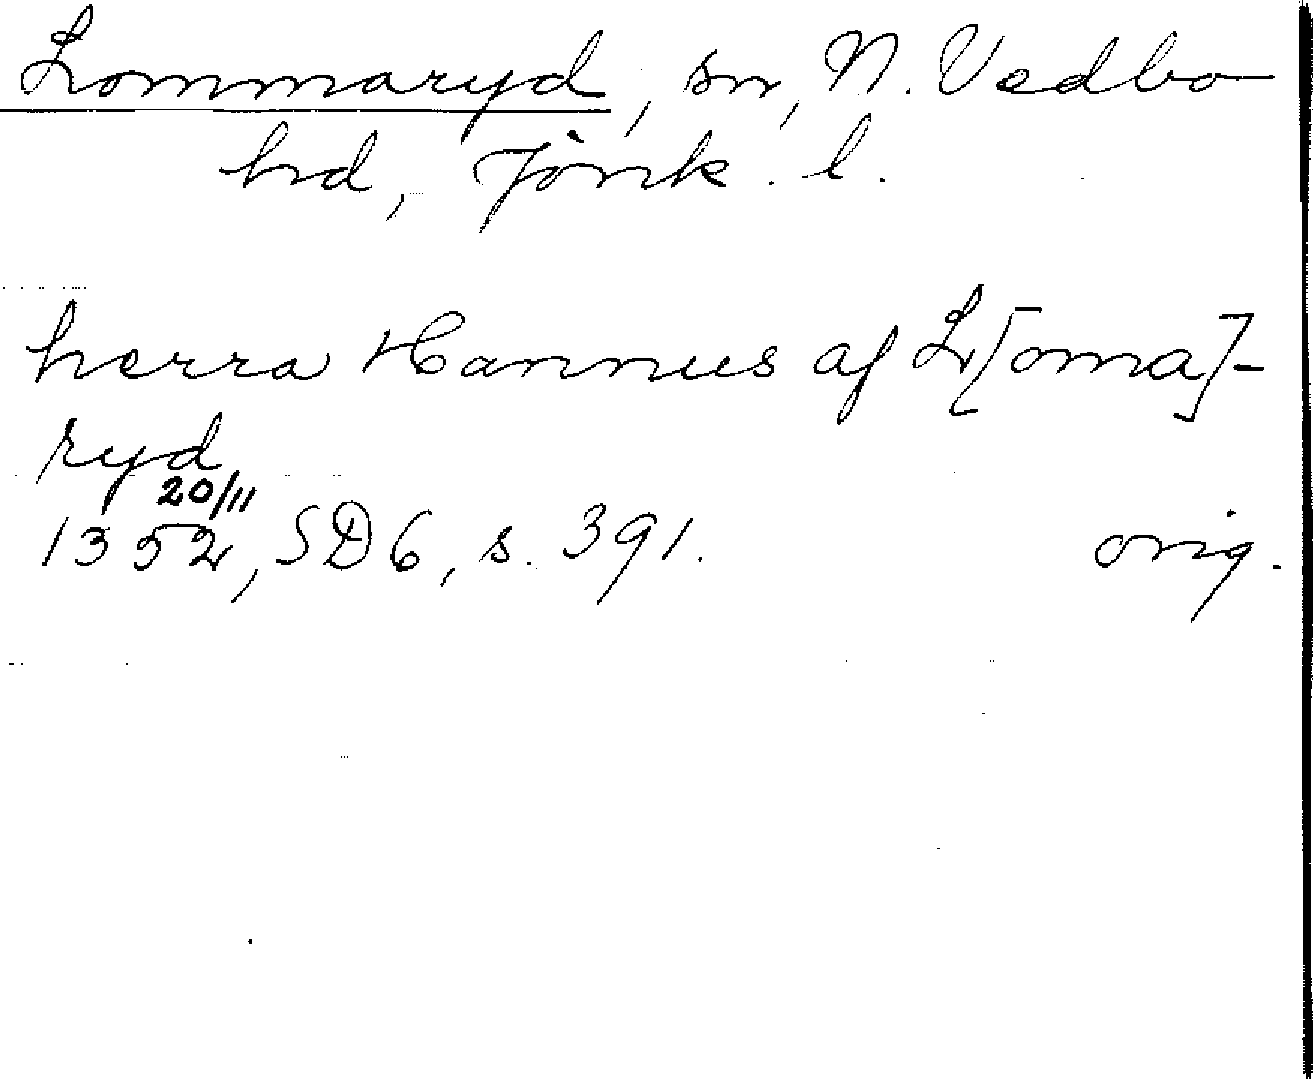 Lommaryd, sn, N. Vedbo
hd, Jönk. l.
herra Hannus af L[oma]-
ryd
20/11
1352, SD 6, s. 391. orig.